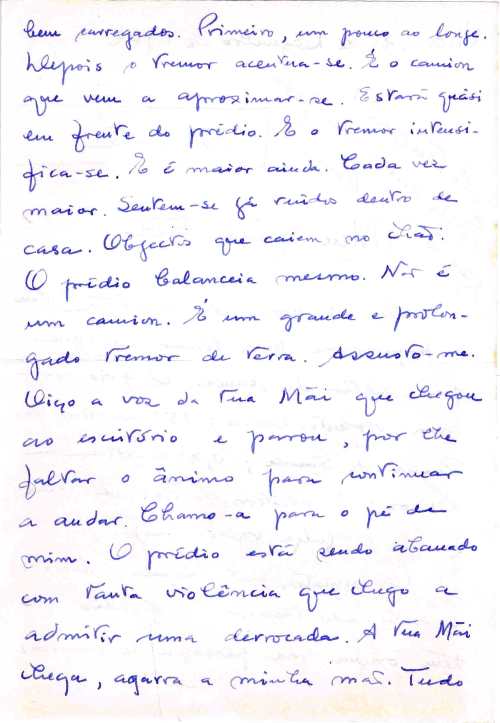 bem carregados. Primeiro, um pouco ao longe.
Depois o tremor acentua-se. É o camion
que vem a aproximar-se. Estará quási
em frente do prédio. E o tremor intensi-
fica-se. E é maior ainda. Cada vez
maior. Sentem-se já ruídos dentro de
casa. Objectos que caiem no chão.
O prédio balanceia mesmo. Não é
um camion. É um grande e prolon-
gado tremor de terra. Assusto-me.
Oiço a voz da tua Mãi que chegou
ao escritório e parou, por lhe
faltar o ânimo para continuar
a andar. Chamo-a para o pé de
mim. O prédio está sendo abanado
com tanta violência que chego a
admitir uma derrocada. A tua Mãi
chega, agarra a minha mão. Tudo